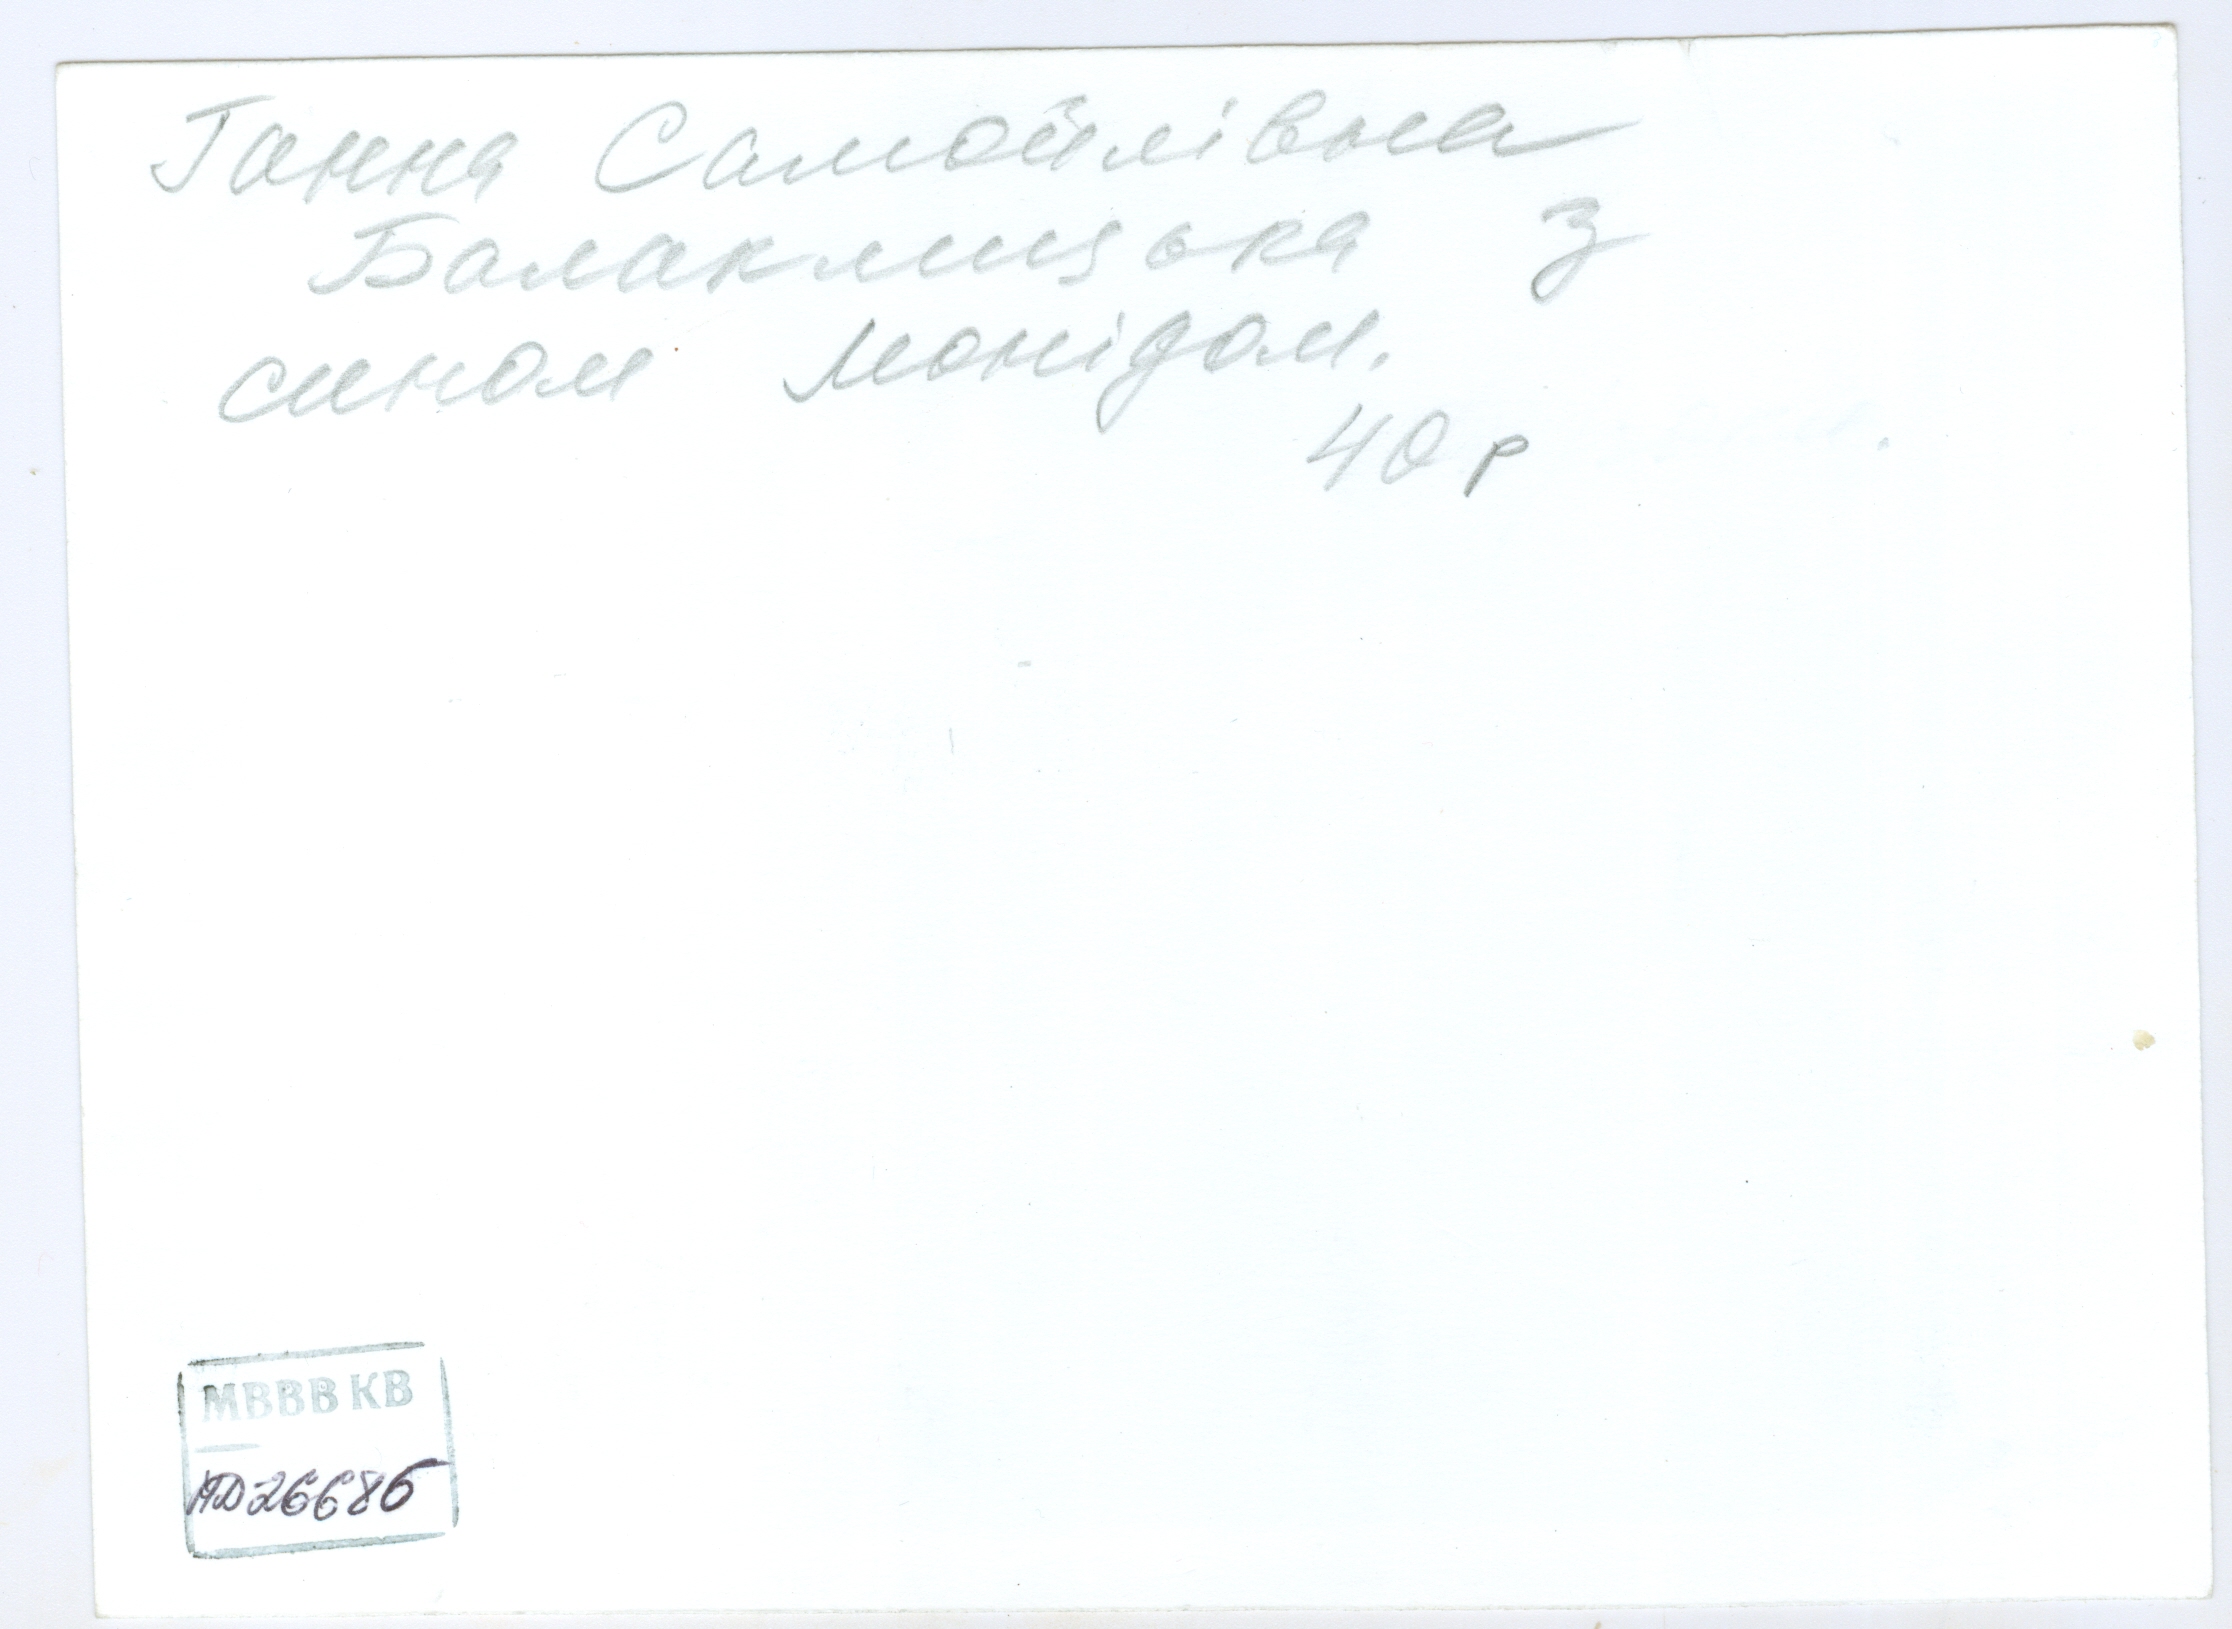 Ганна Самойлівна
Балаклицька з
сином Монідом.
40 р
МВВВ КВ
НД 26686